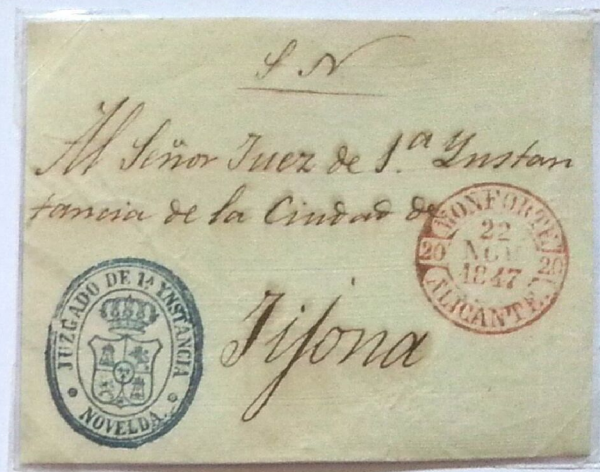 S N
Al Señor Juez de 1.ª Ynstan
tancia de la Ciudad de
Jijona
MONFORTE
22
NOV
1847
20 20
ALICANTE.
JUZGADO DE 1ª YNSTANCIA
NOVELDA.